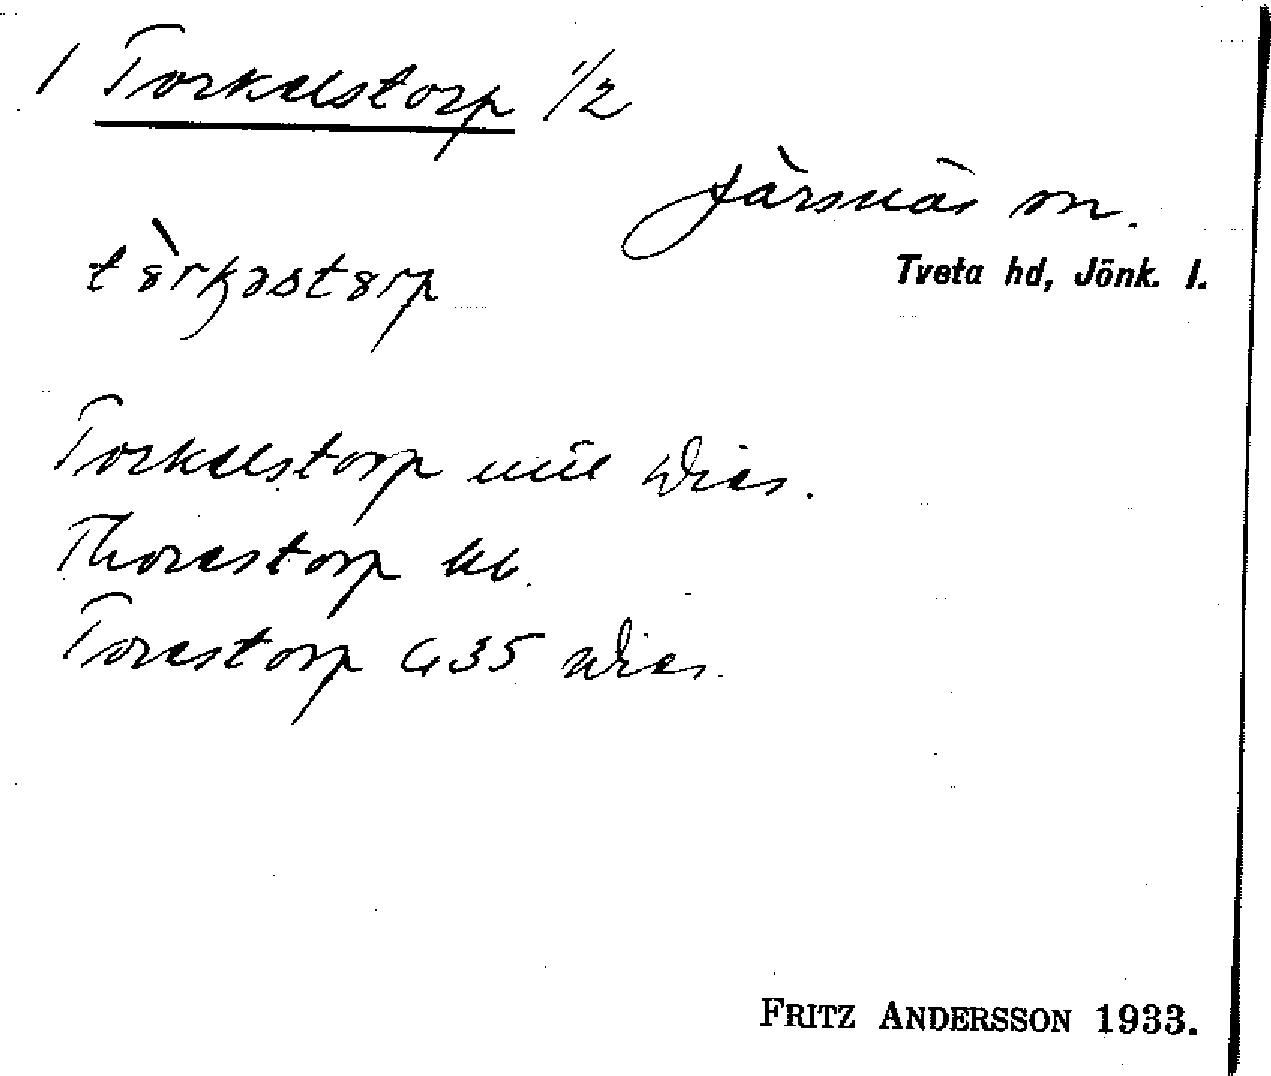 1 Torkelstorp 1/2
Järsnäs sn.
Tveta hd, Jönk. l.
Torkelstorp
Thorestorp kb.
Torestorp G35
FRITZ ANDERSSON 1933.